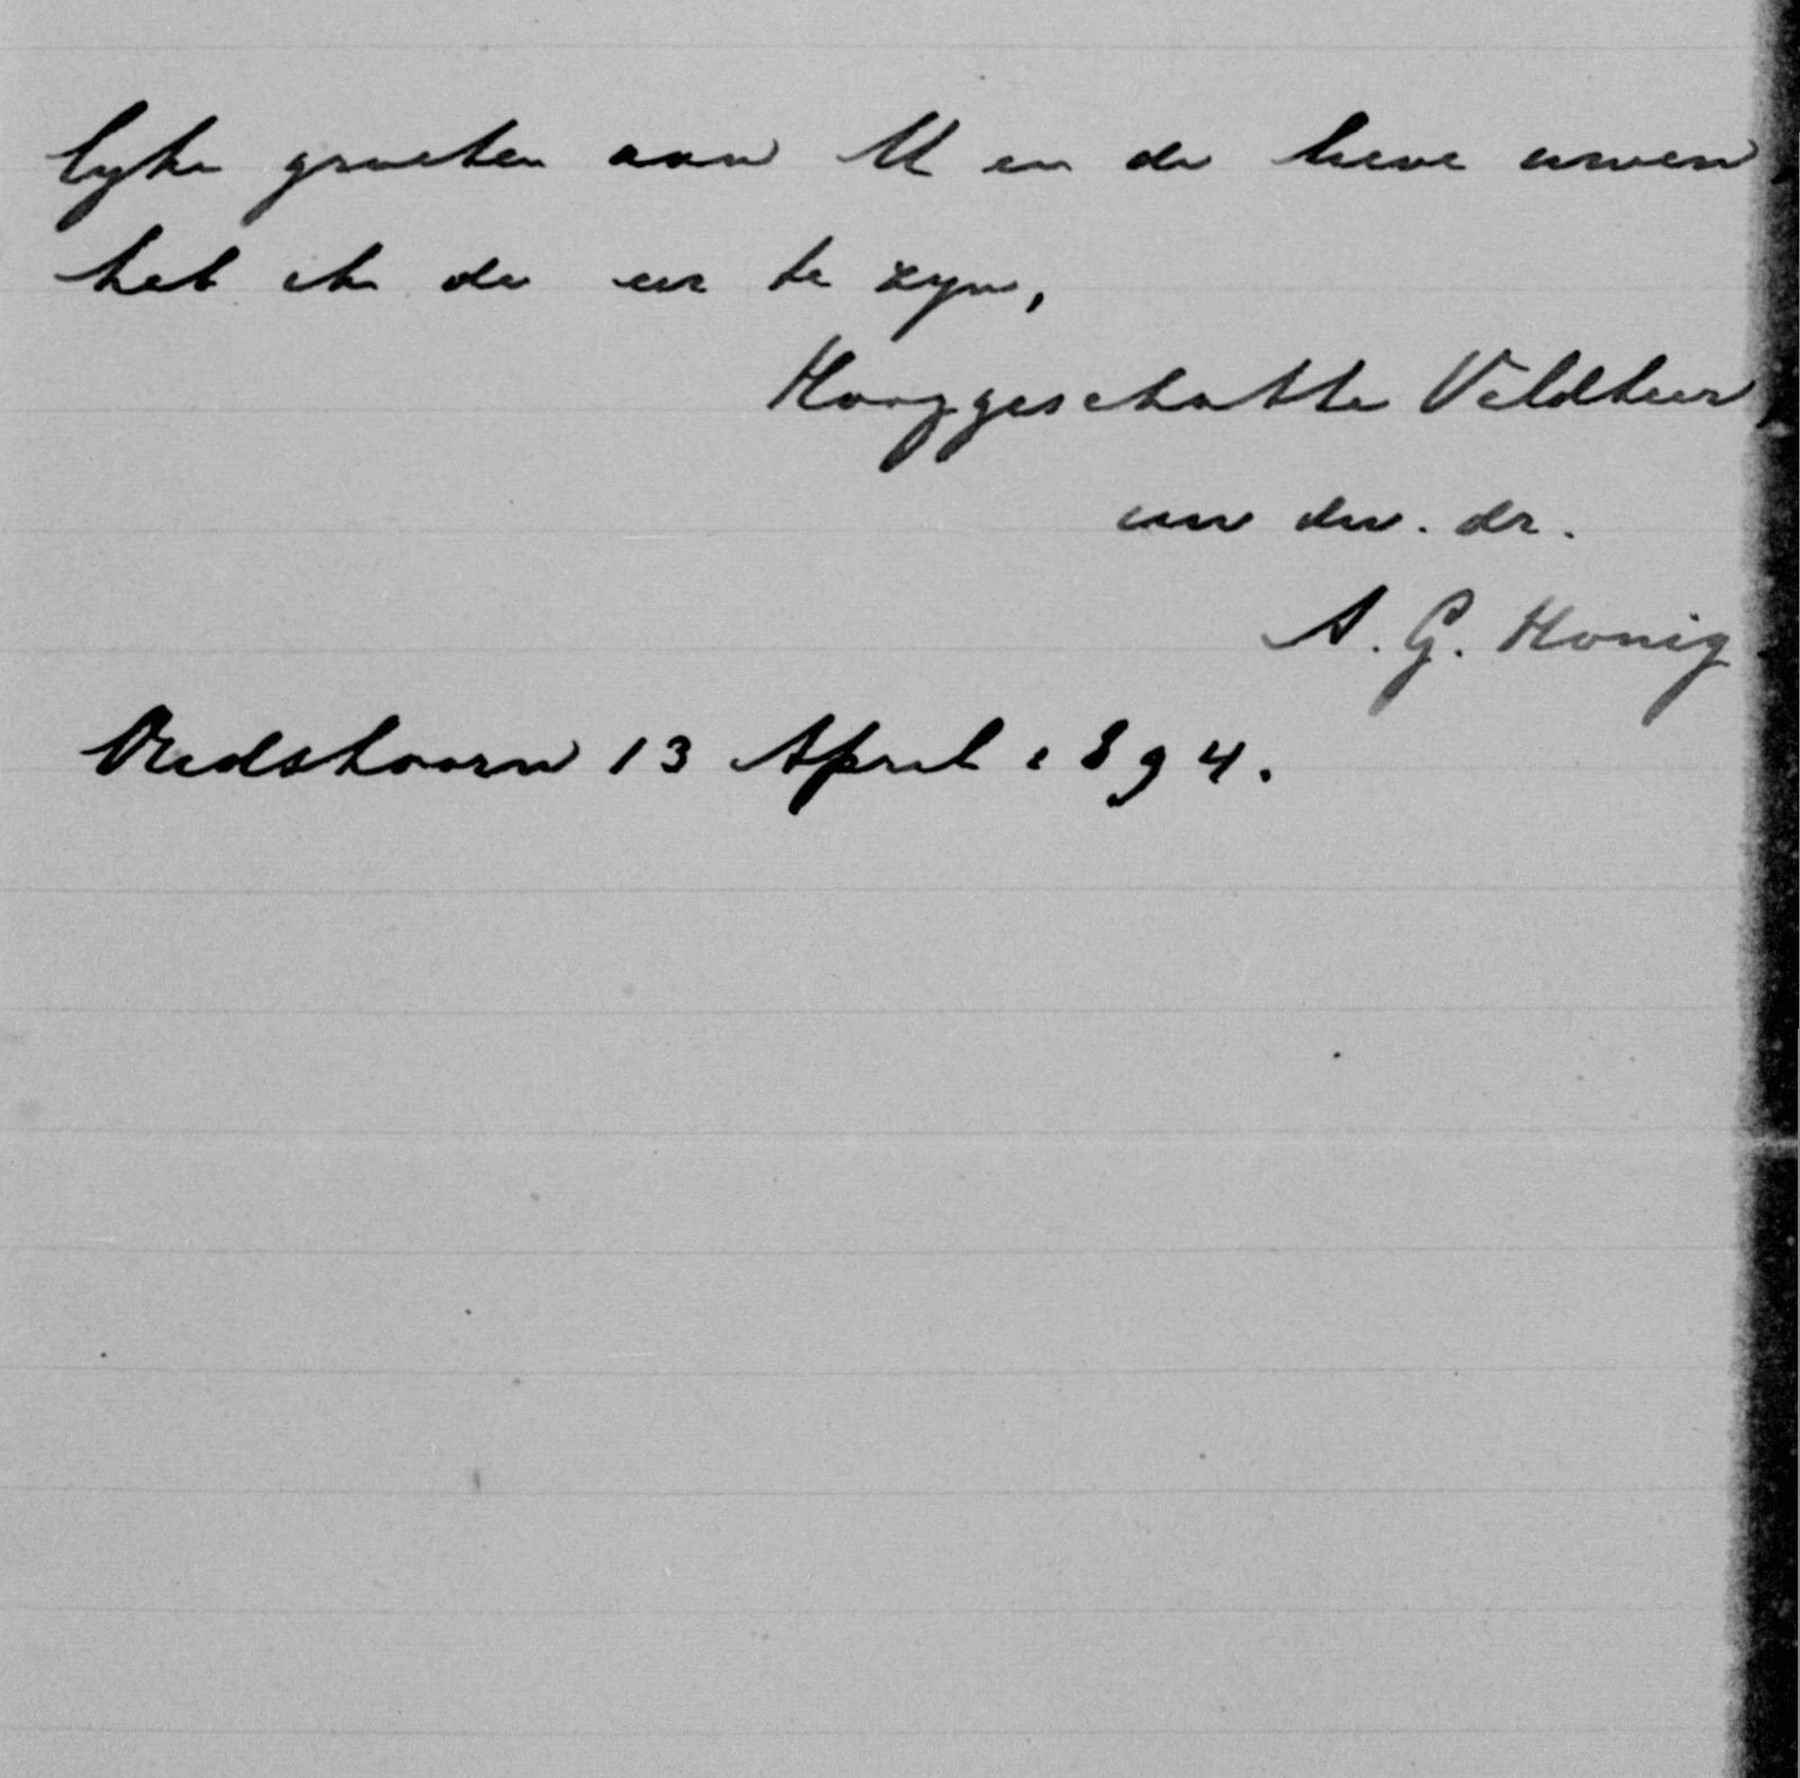 lyke groeten aan U en de lieve uwen,
heb ik de eer te zyn,
Hooggeschatte Veldheer,
uw dw. dr.
A. G. Honig
Oudshoorn 13 April 1894.